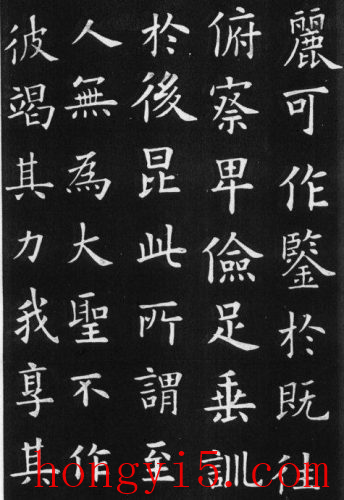 麗可作鑒於既往
俯察卑儉足垂訓
於後昆此所謂至
人無為大聖不作
彼竭其力我享其
hongyi5.com